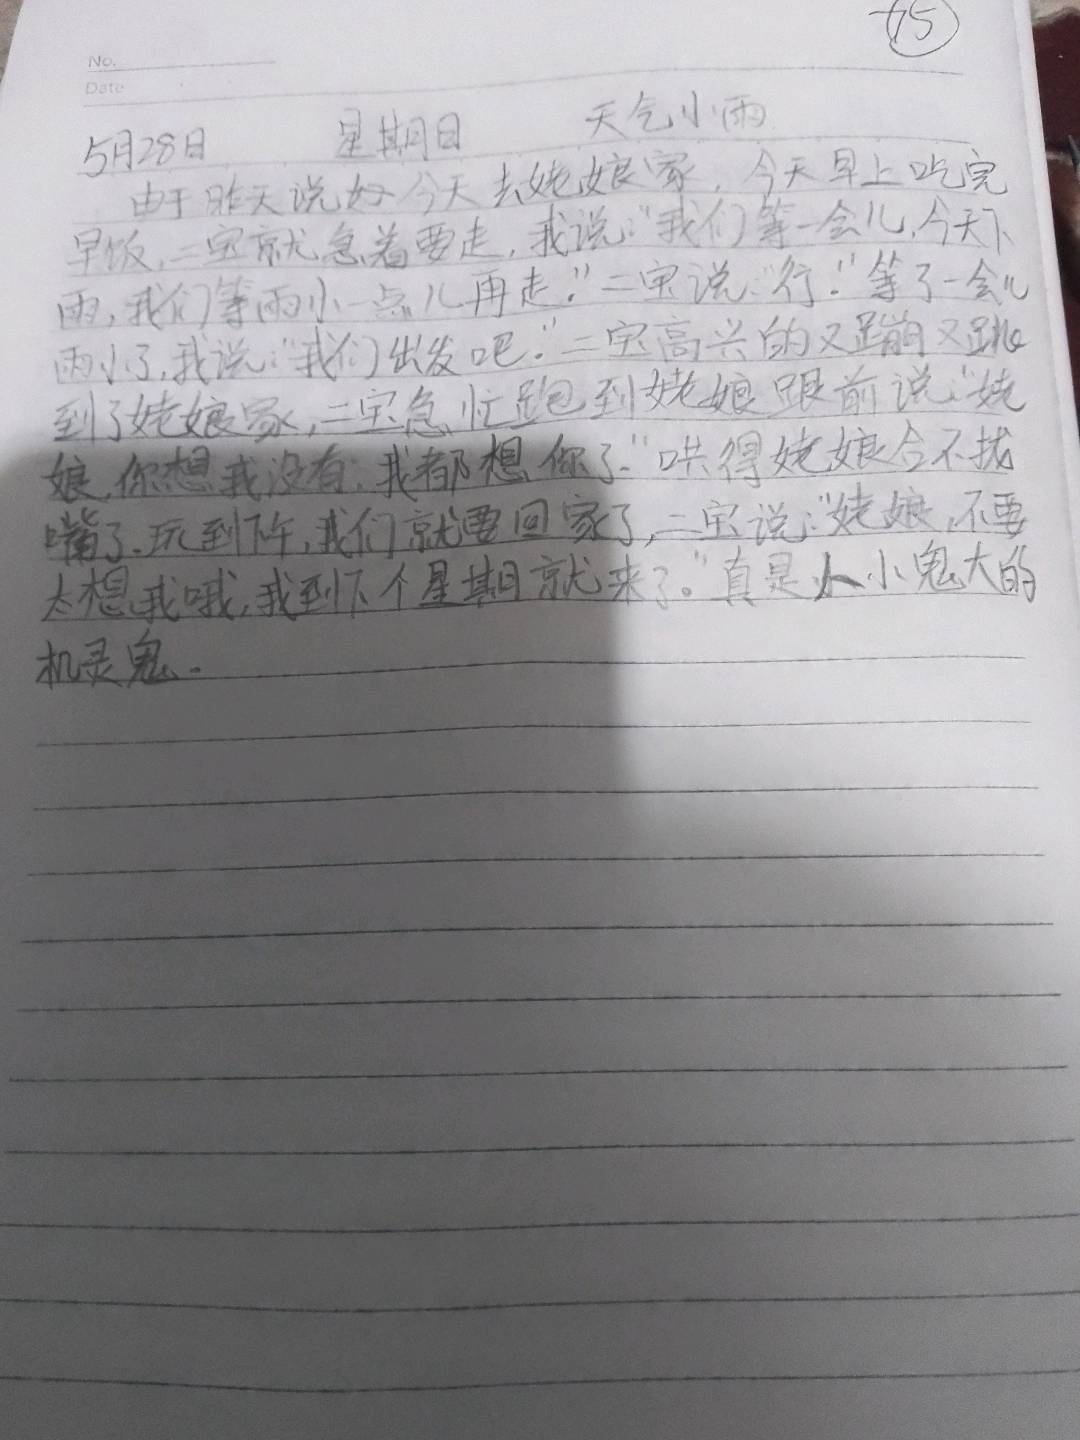 No.
Date
5月28日 星期日 天气小雨
由于昨天说好今天去姥娘家，今天早上吃完
早饭，二宝就急着要走，我说："我们等一会儿，今天下
雨，我们等雨小一点儿再走。"二宝说："行！"等了一会儿
雨小了，我说："我们出发吧。"二宝高兴的又蹦又跳
到了姥娘家，二宝急忙跑到姥娘跟前说："姥
娘，你想我没有，我都想你了。"哄得姥娘合不拢
嘴了。玩到下午，我们就要回家了，二宝说："姥娘，不要
太想我哦，我到下个星期就来了。"真是人小鬼大的
机灵鬼。